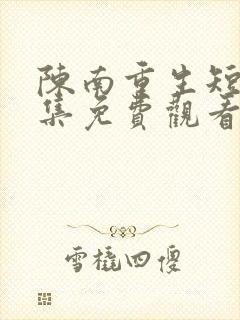 陳南重生短
集免費觀看
雪橇四傻